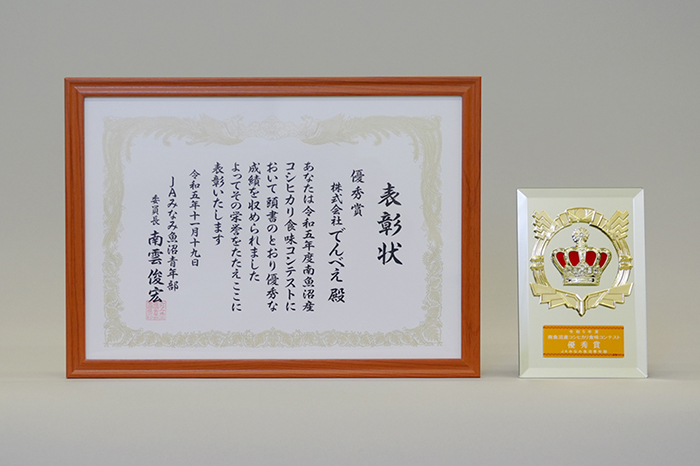 表彰状
優秀賞
株式会社でんべえ殿
あなたは令和五年度南魚沼産
コシヒカリ食味コンテストに
おいて頭書のとおり優秀な
成績を収められました
よってその栄誉をたたえここに
表彰いたします
令和五年十一月十九日
JAみなみ魚沼青年部
委員長 南雲俊宏
令和5年度
南魚沼産コシヒカリ食味コンテスト
優秀賞
JAみなみ魚沼青年部